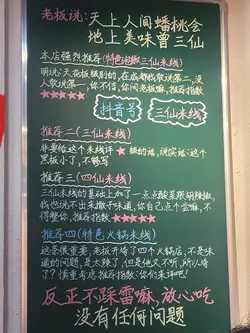 老板说:天上人间蟠桃会
地上美味曾三仙
本店强烈推荐(特色泡椒三仙米线)
明说:天花板级别的,在成都我数说第二,没
人敢说第一,你不信,你问老板嘛,推荐指数
抖音号 三仙米线
推荐二(三仙米线)
非要给这个米线评★级的话,说实话:这个
黑板小了,不够写
推荐三(四仙米线)
三仙米线的基础上加了一点点酸菜跟胡辣椒,
我也说不出来啥子味道,你自己点个尝嘛,不
得整你,推荐指数★★★★★
推荐四(特色火锅米线)
这荟很重要,老板开垮了四个火锅店,不是味
道的问题,是太辣了,但是他又不听,所以垮
了?慎重考虑推荐指数:你们来评吧!
反正不踩雷嘛,放心吃
没有任何问题